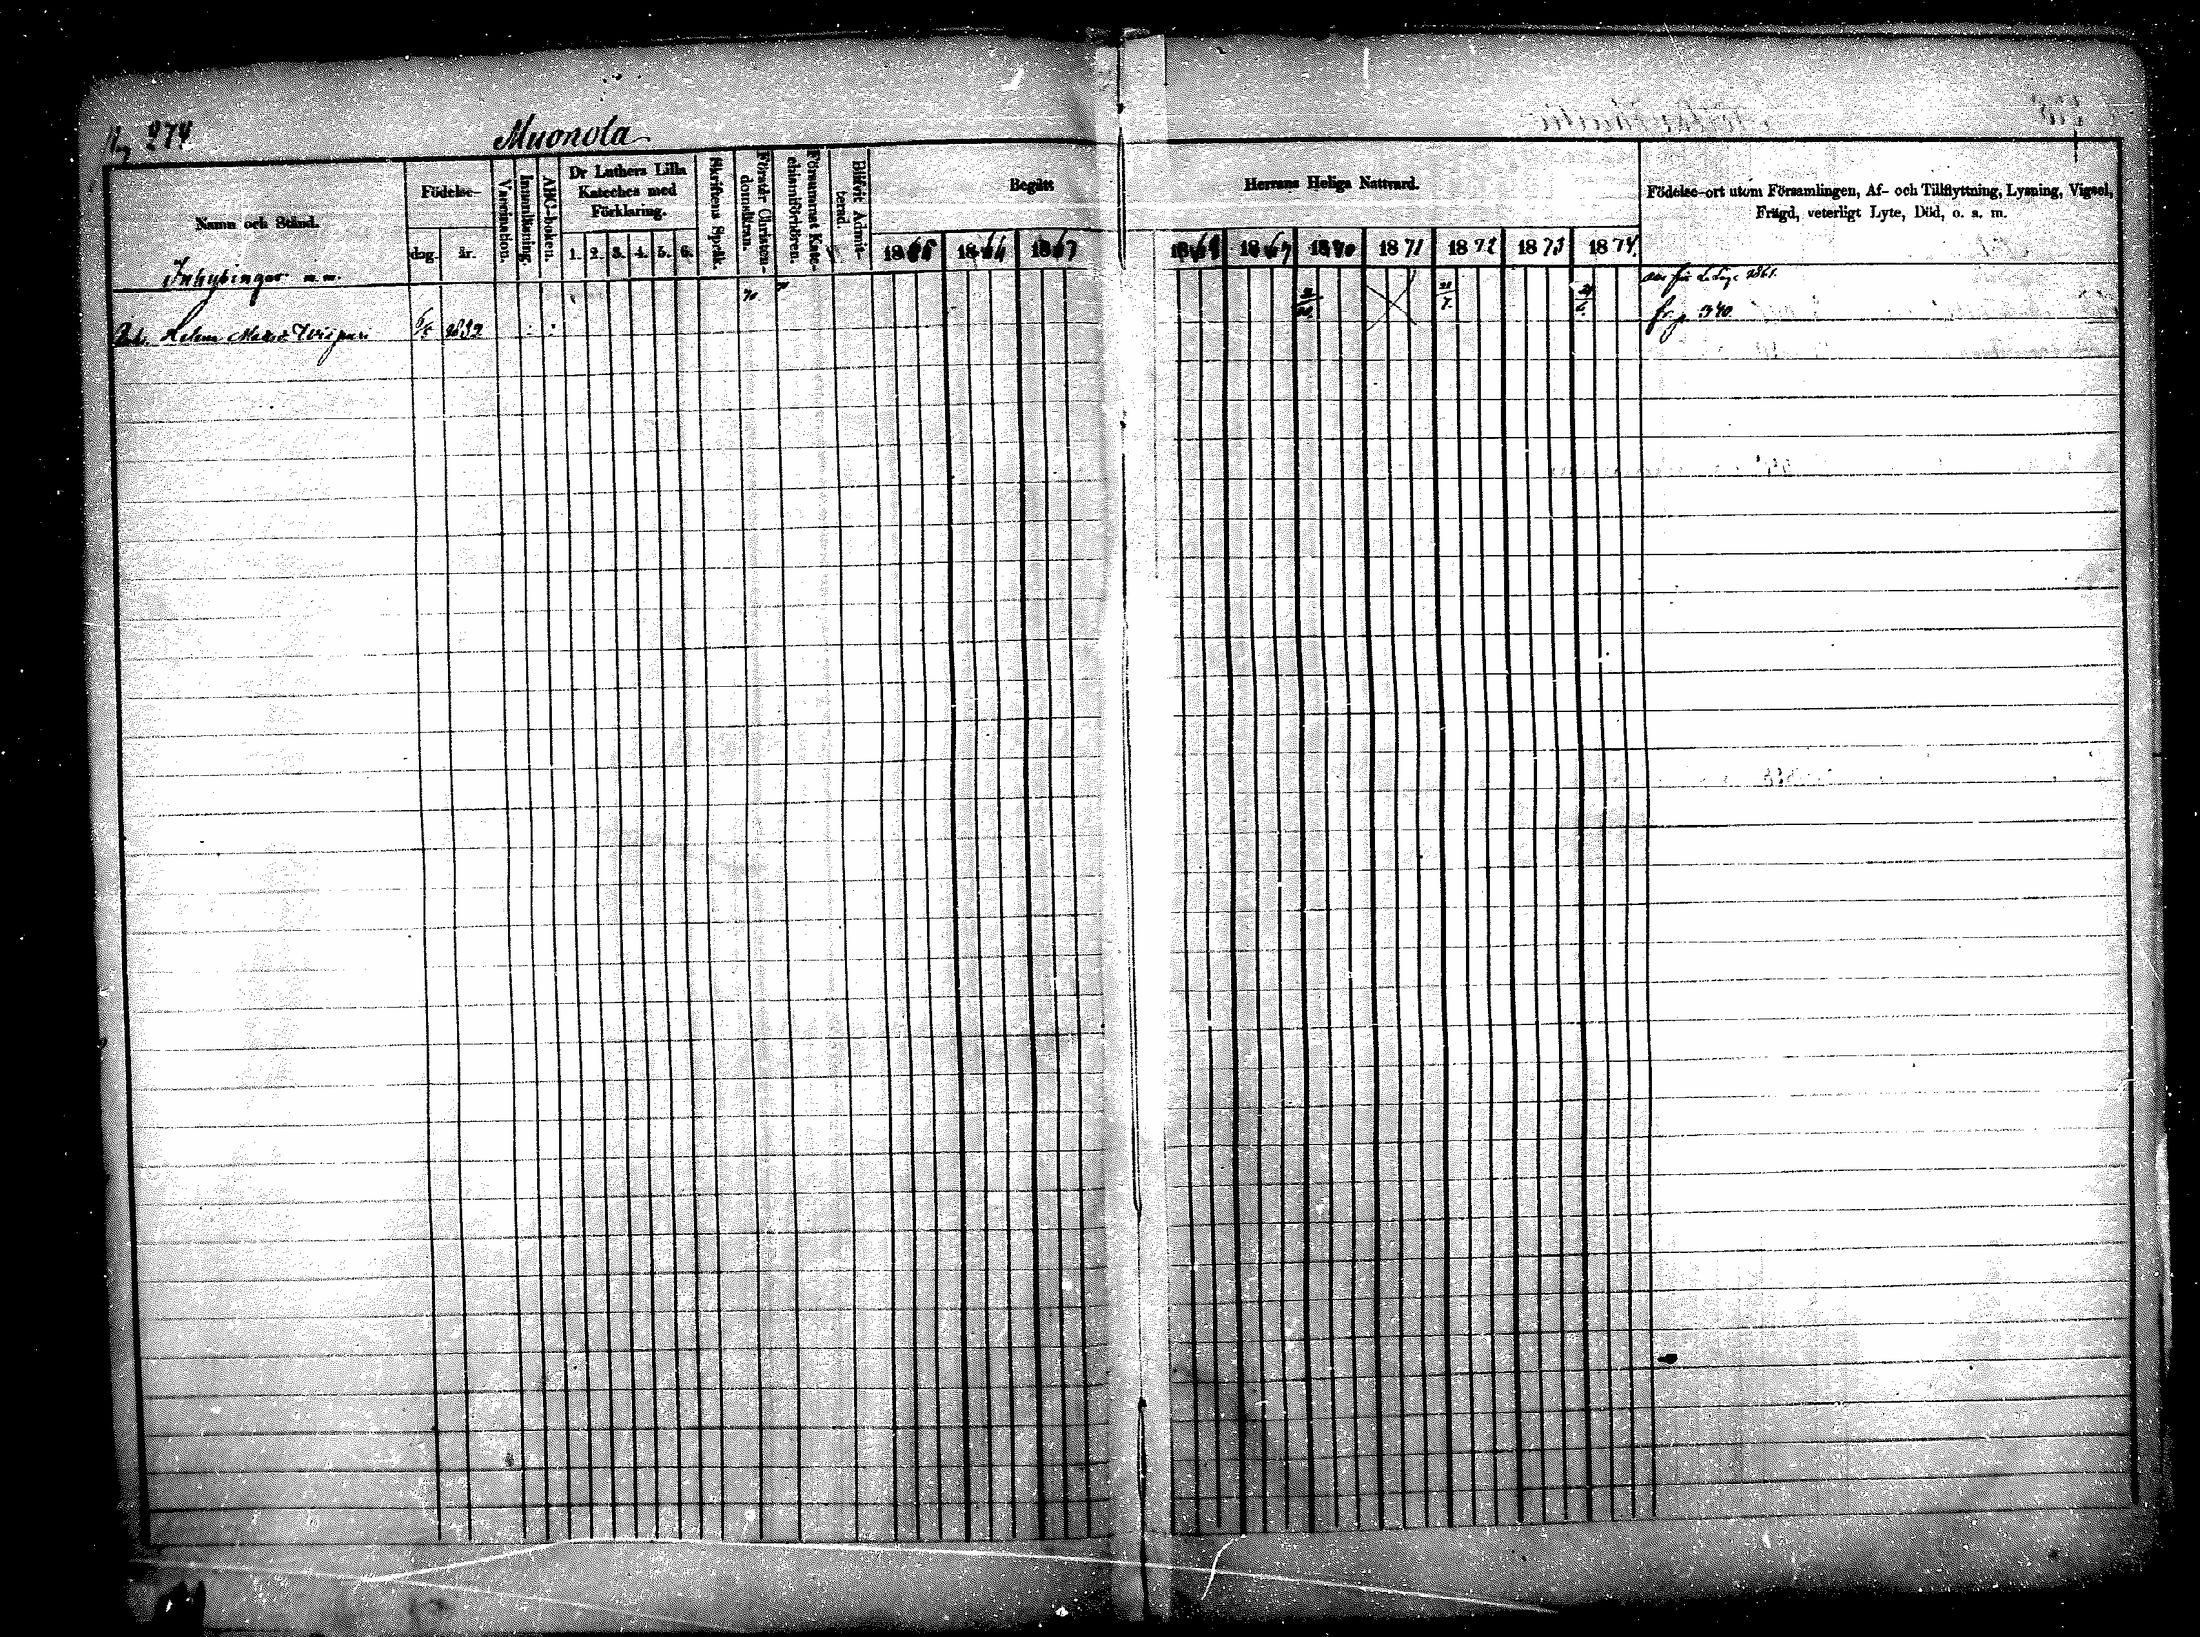 274
Muonola
Namn och Stånd.
Födelse-
dag.
år.
Vaccination.
Innanläsning.
ABC-boken.
Dr Luthers Lilla
Kateches med
Förklaring.
1. 2. 3. 4. 5. 6.
Skriftens Språk.
Förstår Christen-
domsläran.
Försummat Kate-
chismiförhören.
Blifvit Admit-
terad.
Begått
Herrans Heliga Nattvard.
1865 1866 1867
1868 1869 1870 1871 1872 1873 1874
Födelse-ort utom Församlingen, Af- och Tillflyttning, Lysning, Vigsel,
Frägd, veterligt Lyte, Död, o. s. m.
Inhysingar m.m.
Helena
1832
fr. p.